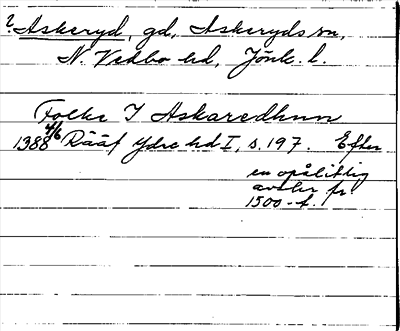 ? Askeryd, gd, Askeryds sn,
N. Vedbo hd, Jönk. l.
Folke I Askaredhum
1388 4/6 Rääf Ydre hd I, s. 197. Efter
en opålitlig
avskr fr
1500-t.